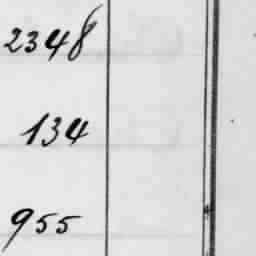 2348
134
955